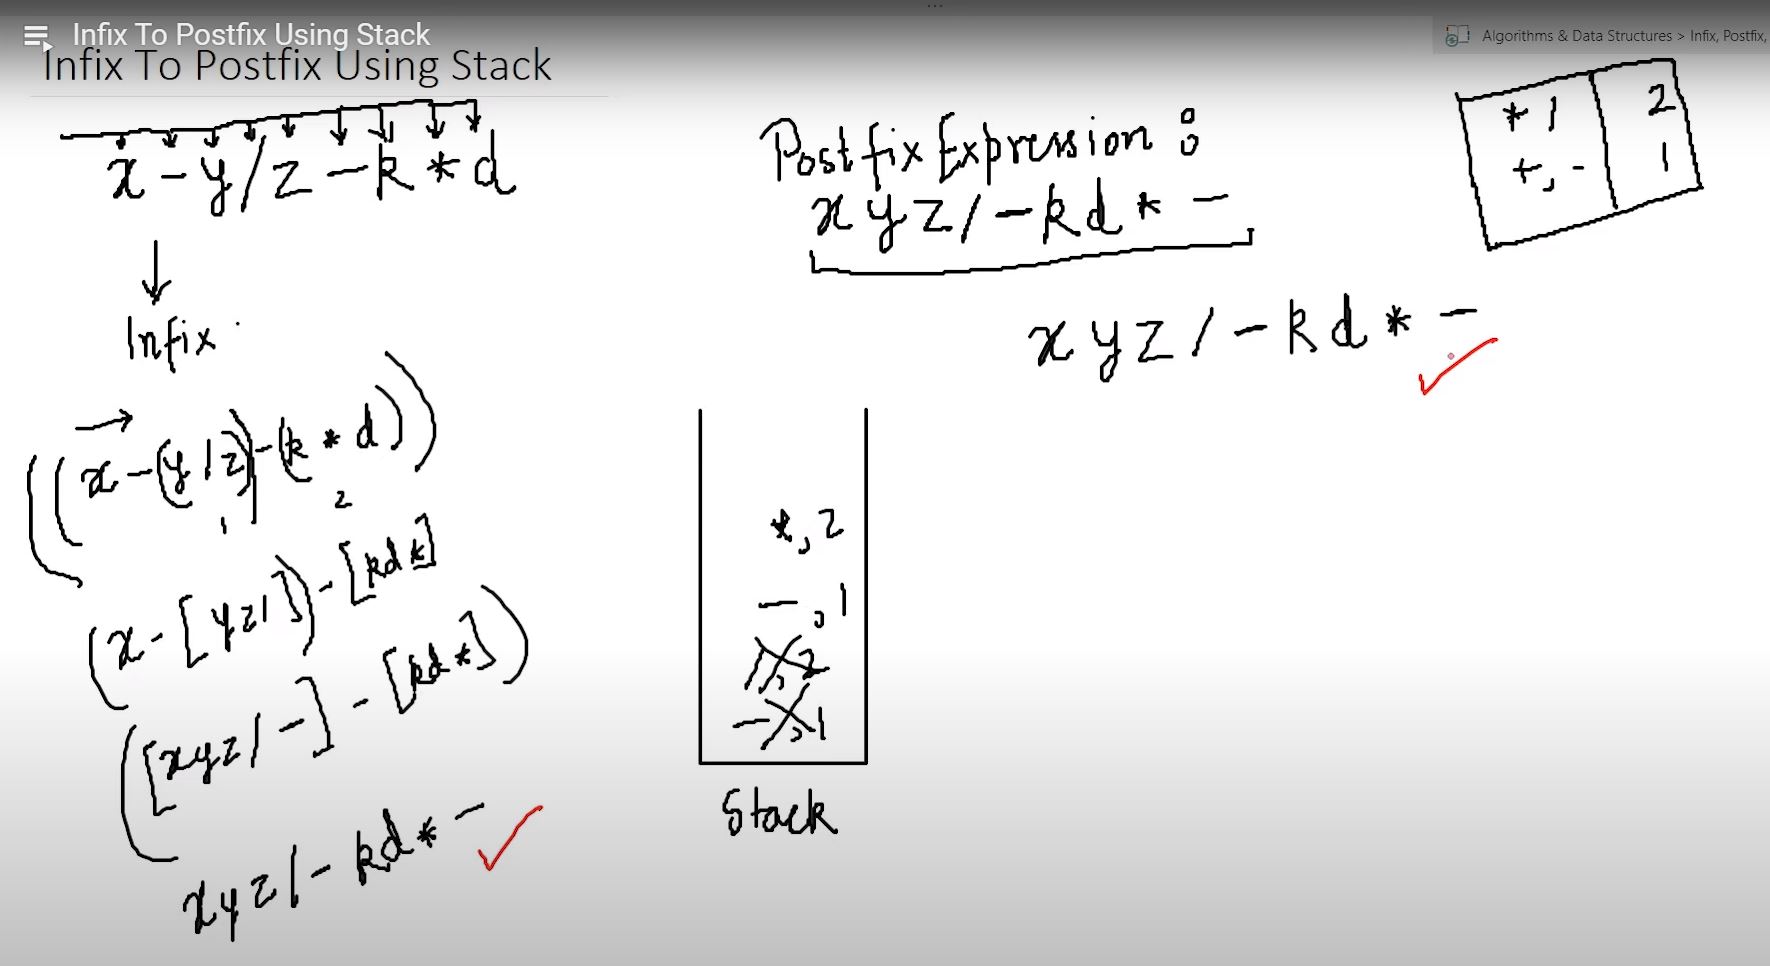 Infix To Postfix Using Stack
Algorithms & Data Structures > Infix, Postfix,
Infix To Postfix Using Stack
x - y / z - k * d
Infix
((x - (y / z)) - (k * d))
1 2
(x - [yz/]) - [kd*]
([xyz/-] - [kd*])
xyz/-kd*-
Postfix Expression :
x y z / - k d * -
x y z / - k d * -
* / 2
+, - 1
*, 2
-, 1
/, 2
-, 1
Stack